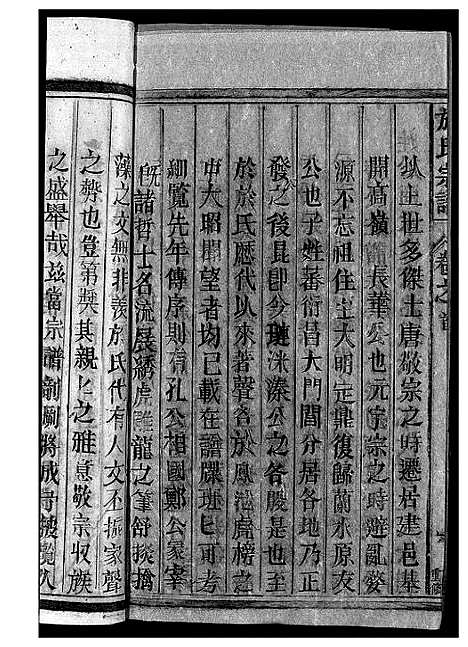 於氏宗譜 卷之首
以上世多傑士唐敬宗之時遷居建邑基
開高嶺 振華公也元宇宗之時避亂婺
源不忘祖也大明定鼎復歸蘭水原友
公也子姓蕃衍昌大門閭分居各地乃正
發之後昆即今璉洣溱公之各股是也至
於於氏歷代以來著聲名於鳳池虎榜之
中大昭聞望者均已載在譜牒班班可考
細覽先年傳序則有孔公相國鄭公冢宰
既諸哲士名流展綉虎雕龍之筆舒掞摛
藻之文無非羨於氏代有人文丕振家聲
之勢也豈第獎其親上之雅意敬宗收族
之盛舉哉茲當宗譜剞劂將成守獲覽入
重修